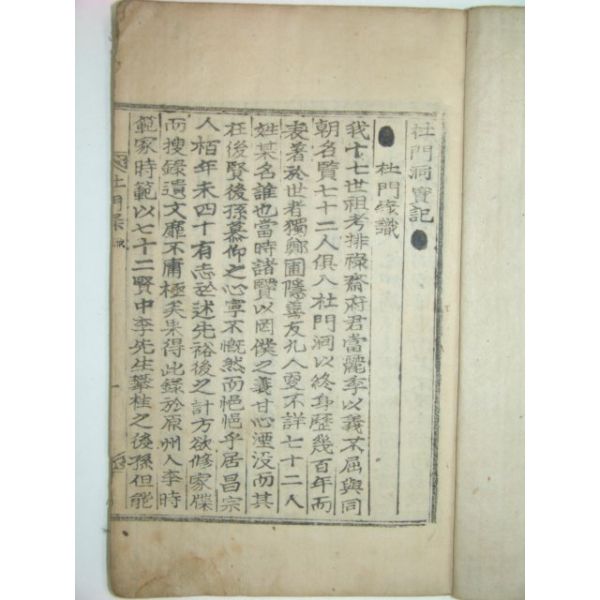 杜門洞實記
杜門錄識
我十七世祖考排祿齋府君當麗季以義不屈與同
朝名賢七十二人俱入杜門洞以終身歷幾百年而
表著於世者獨鄭圃隱善友九人耍不詳七十二人
姓某名誰也當時諸賢以罔僕之義甘心湮没而其
在後賢後孫慕仰之心寧不慨然而悒悒乎居昌宗
人栢年未四十有志於述先裕後之計方欲修家牒
而搜錄遺文靡不庸極矣果得此錄於原州人李時
範家時範以七十二賢中李先生擎桂之後孫但能
杜門